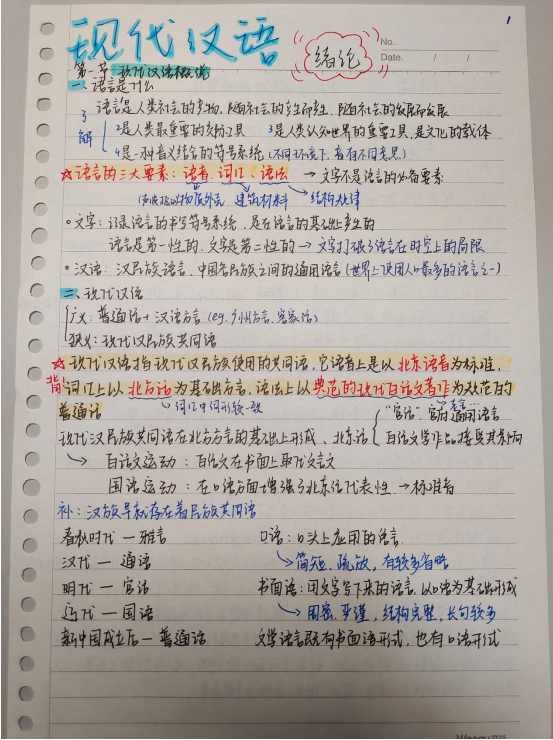 1
现代汉语
绪论
No.
Date. / /
第一节 现代汉语概说
一、语言是什么
了解
1语言是人类社会的产物,随社会的产生而产生,随社会的发展而发展
2是人类最重要的交际工具 3是人类认知世界的重要工具,是文化的载体
4是一种音义结合的符号系统(不同环境下,音有不同意思)
☆语言的三大要素:语音、词汇、语法 → 文字不是语言的必备要素
物质外壳 建筑材料 结构规律
○文字:记录语言的书写符号系统,是在语言的基础上产生的
语言是第一性的,文字是第二性的 → 文字打破了语言在时空上的局限
○汉语:汉民族语言,中国各民族之间的通用语言(世界上使用人口最多的语言之一)
二、现代汉语
广义:普通话+汉语方言(eg.广州方言、客家话)
狭义:现代汉民族共同语
☆现代汉语指现代汉民族使用的共同语,它语音上是以北京语音为标准,
背!词汇上以北方话为基础方言,语法上以典范的现代白话文著作为规范的
普通话 → 词汇中词形较一致
现代汉民族共同语在北方方言的基础上形成、北京话
"官话":官府通用语言
白话文学作品接受其影响
→ 白话文运动:白话文在书面上取代文言文
国语运动:在口语方面增强了北京话代表性 → 标准音
补:汉族早就存在着民族共同语
春秋时代 — 雅言 口语:口头上应用的语言
汉代 — 通语 → 简短、疏放,有较多省略
明代 — 官话 书面语:用文字写下来的语言,以口语为基础形成
近代 — 国语 → 周密,严谨,结构完整,长句较多
新中国成立后 — 普通话 文学语言既有书面语形式,也有口语形式